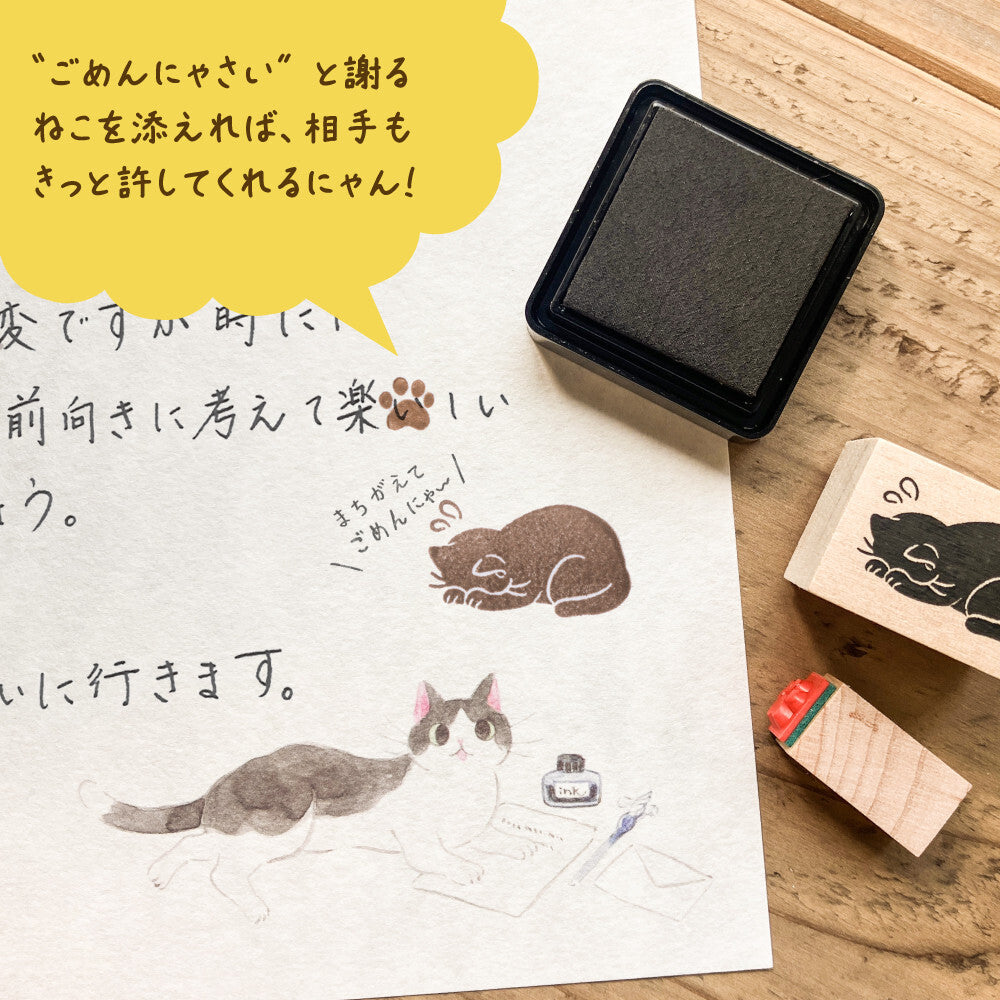 “ごめんにゃさい” と謝る
ねこを添えれば、相手も
きっと許してくれるにゃん！
変ですが時に
前向きに考えて楽しい
う。
まちがえて
ごめんにゃ〜
いに行きます。
ink